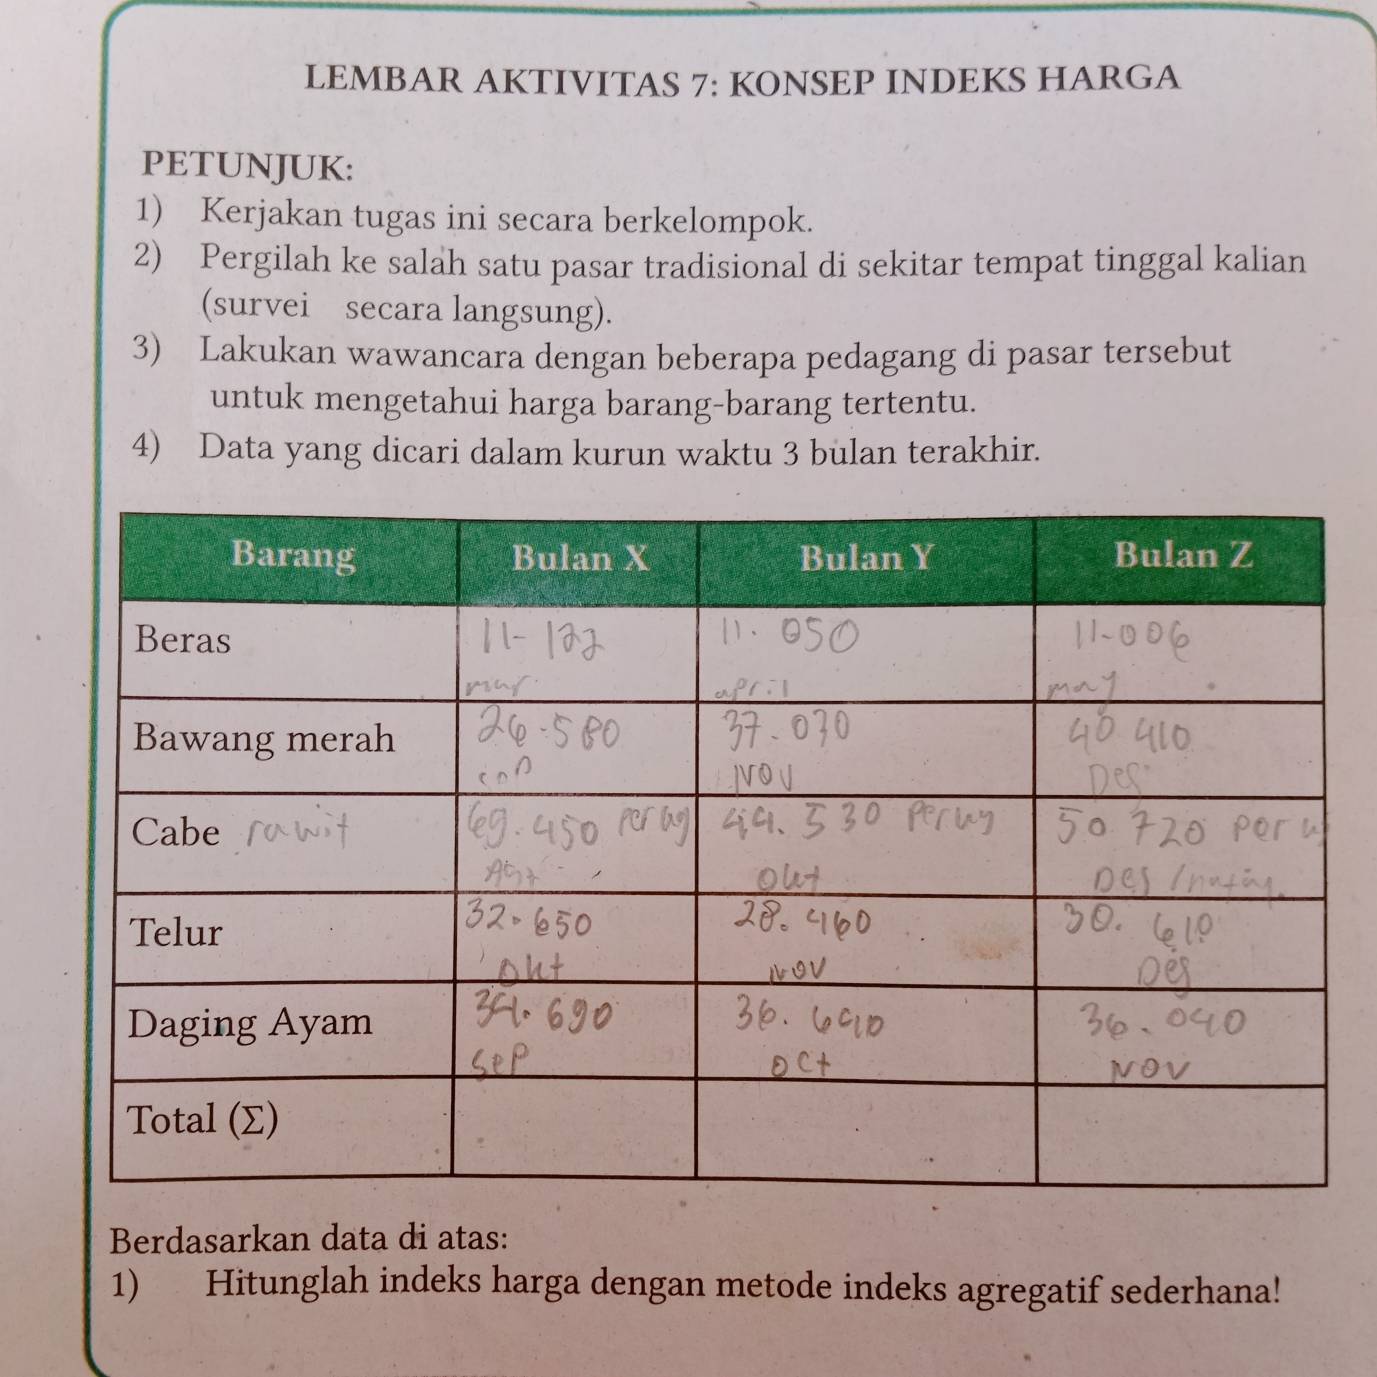 LEMBAR AKTIVITAS 7: KONSEP INDEKS HARGA
PETUNJUK:
1) Kerjakan tugas ini secara berkelompok.
2) Pergilah ke salah satu pasar tradisional di sekitar tempat tinggal kalian
(survei secara langsung).
3) Lakukan wawancara dengan beberapa pedagang di pasar tersebut
untuk mengetahui harga barang-barang tertentu.
4) Data yang dicari dalam kurun waktu 3 bulan terakhir.
Barang Bulan X Bulan Y Bulan Z
Beras 11. 050 11-006
mar april may
Bawang merah 26.580 37.030 40 410
Nov Des
Cabe rawit 69.450 44.530 50 720 per
Agt Okt Des
Telur 32.650 28.460 30. 610
Okt Nov Des
Daging Ayam 34.690 36. 640 36.040
Sep Oct Nov
Total (Σ)
Berdasarkan data di atas:
1) Hitunglah indeks harga dengan metode indeks agregatif sederhana!